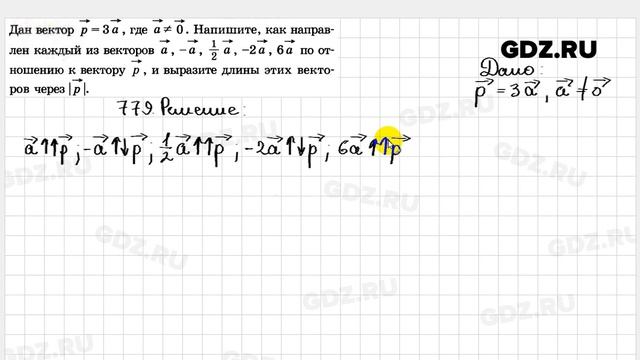 Дан вектор p = 3a, где a ≠ 0. Напишите, как направ-
лен каждый из векторов a, −a, 1/2 a, −2a, 6a по от-
ношению к вектору p, и выразите длины этих векто-
ров через |p|.
GDZ.RU
Дано:
p = 3a, a ≠ 0
779. Решение:
a ↑↑ p; −a ↑↓ p; 1/2 a ↑↑ p; −2a ↑↓ p; 6a ↑↑ p
GDZ.RU
GDZ.RU
GDZ.RU
GDZ.RU
GDZ.RU
GDZ.RU
GDZ.RU
GDZ.RU